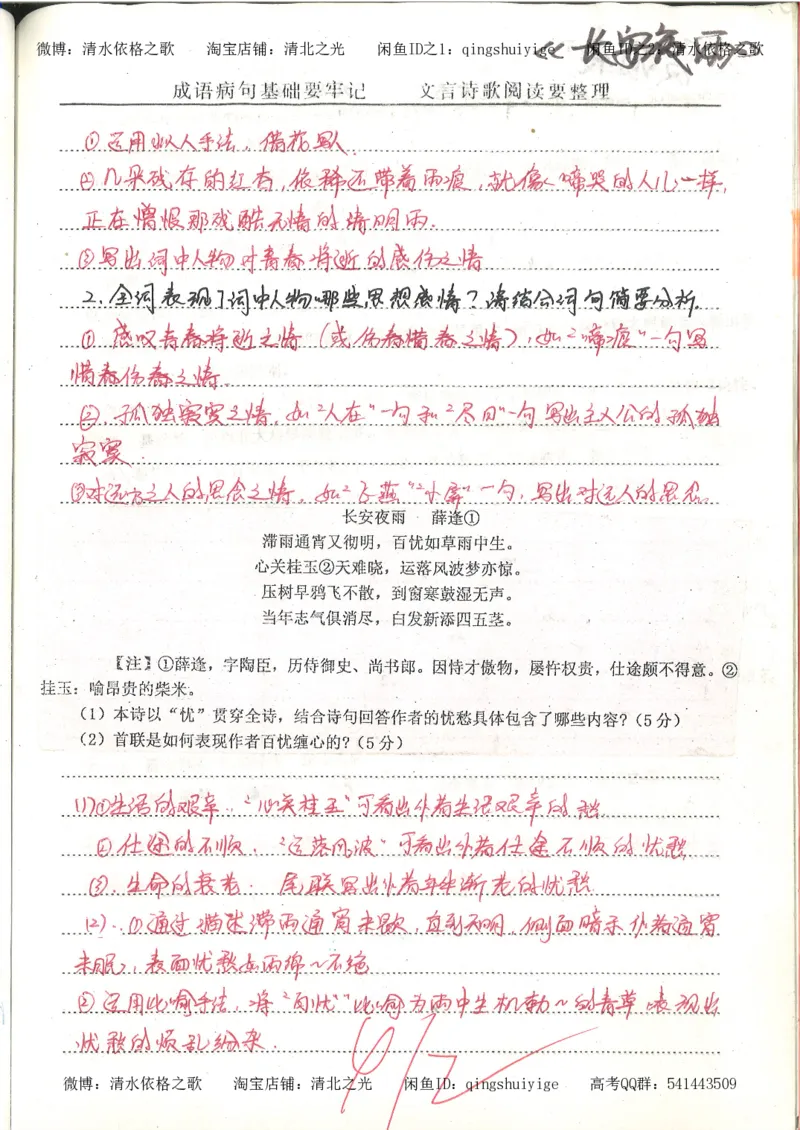 微博：清水依格之歌　淘宝店铺：清北之光　闲鱼ID之1：qingshuiyige　闲鱼ID之2：清水依格之歌
《长安夜雨》
成语病句基础要牢记　文言诗歌阅读要整理
①运用拟人手法，借花写人
②几朵残存的红杏，依稀还带着雨痕，就像啼哭的人儿一样，
正在憎恨那残酷无情的清明雨．
③写出词中人物对青春将逝的感伤之情
2．全词表现了词中人物哪些思想感情？请结合词句简要分析．
①感叹青春将逝之情（或伤春惜春之情），如“啼痕”一句写
惜春伤春之情．
②．孤独寂寞之情，如“人在”一句和“尽日”一句写出主人公的孤独
寂寞．
③对远方之人的思念之情，如“飞燕”“小屏”一句，写出对远人的思念．
长安夜雨　薛逢①
滞雨通宵又彻明，百忧如草雨中生。
心关桂玉②天难晓，运落风波梦亦惊。
压树早鸦飞不散，到窗寒鼓湿无声。
当年志气俱消尽，白发新添四五茎。
【注】①薛逢，字陶臣，历侍御史、尚书郎。因恃才傲物，屡忤权贵，仕途颇不得意。②
挂玉：喻昂贵的柴米。
（1）本诗以“忧”贯穿全诗，结合诗句回答作者的忧愁具体包含了哪些内容？（5分）
（2）首联是如何表现作者百忧缠心的？（5分）
(1)①生活的艰辛．“心关桂玉”可看出作者生活艰辛的愁．
②仕途的不顺．“运落风波”可看出作者仕途不顺的忧愁
③．生命的衰老．尾联写出作者年华渐老的忧愁
(2)．①通过描述滞雨通宵未歇，直到天明，侧面暗示作者通宵
未眠，表面忧愁如雨绵~不绝
②运用比喻手法，将“百忧”比喻为雨中生机勃~的青草，表现出
忧愁的烦乱纷杂．
微博：清水依格之歌　淘宝店铺：清北之光　闲鱼ID：qingshuiyige　高考QQ群：541443509